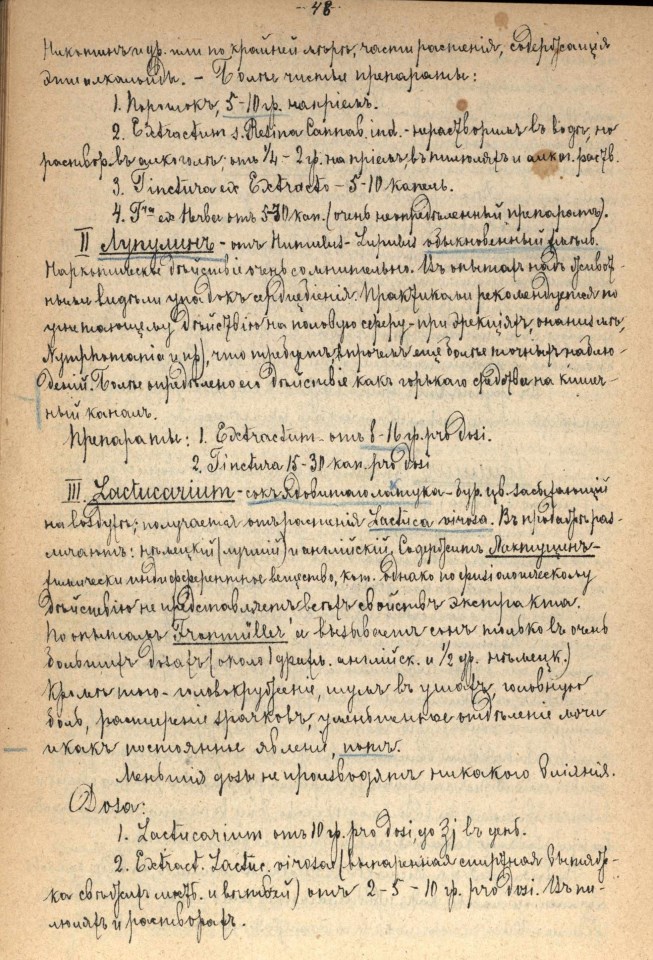 - 48 -
Никотинъ и др. или по крайней мѣрѣ, части растенія, содержащія
эти алкалоиды. – Болѣе чистые препараты:
1. Порошокъ, 5-10 гр. на пріемъ.
2. Extractum s. Resina Cannab. ind. - нерастворимъ въ водѣ, но
раствор. въ алкоголѣ, отъ 1/4 – 2 гр. на пріемъ, въ пилюляхъ и алког. раств.
3. Tinctura ex Extracto – 5-10 капель.
4. T-ra ex Herba отъ 5-30 кап. (очень неопредѣленный препаратъ).
II Лупулинъ - отъ Humulus - Lupulus обыкновенный хмѣль.
Наркотическое дѣйствіе очень сомнительно. Въ опытахъ надъ живот-
ными видѣли упадокъ сердцебіенія. Практиками рекомендуется по
угнетающему дѣйствію на половую сферу - при эрекціяхъ, онанизмѣ,
Nymphomania и пр), что требуетъ, впрочемъ еще болѣе точныхъ наблю-
деній. Болѣе опредѣлено его дѣйствіе какъ горькаго средства на кишеч-
ный каналъ.
Препараты: 1. Extractum - отъ 8-16 гр. pro dosi.
2. Tinctura 15-30 кап. pro dosi
III. Lactucarium - сокъ ядовитаго латука - бур. цв. застывающій
на воздухѣ; получается отъ растенія Lactuca virosa. Въ продажѣ раз-
личаютъ: нѣмецкій (лучшій) и англійскій. Содержитъ Лактуцинъ -
химически индифферентное вещество, кот. однако по физіологическому
дѣйствію не представляетъ всѣхъ свойствъ экстракта.
По опытамъ Fronmüller'а вызываетъ сонъ только въ очень
большихъ dosахъ (около 1 драхм. англійск. и 1/2 др. нѣмецк.)
Кромѣ того - головокруженіе, шумъ въ ушахъ, головную
боль, расширеніе зрачковъ, уменьшенное отдѣленіе мочи
и какъ постоянное явленіе, потъ.
Меньшія дозы не производятъ никакого вліянія.
Dosa:
1. Lactucarium отъ 10 гр. pro dosi, до ʒj въ день.
2. Extract. Lactuc. virosae (выпаренная спиртная вытяж-
ка свѣжихъ листь. и вѣтвей) отъ 2-5-10 гр. pro dosi. Въ пи-
люляхъ и растворахъ.